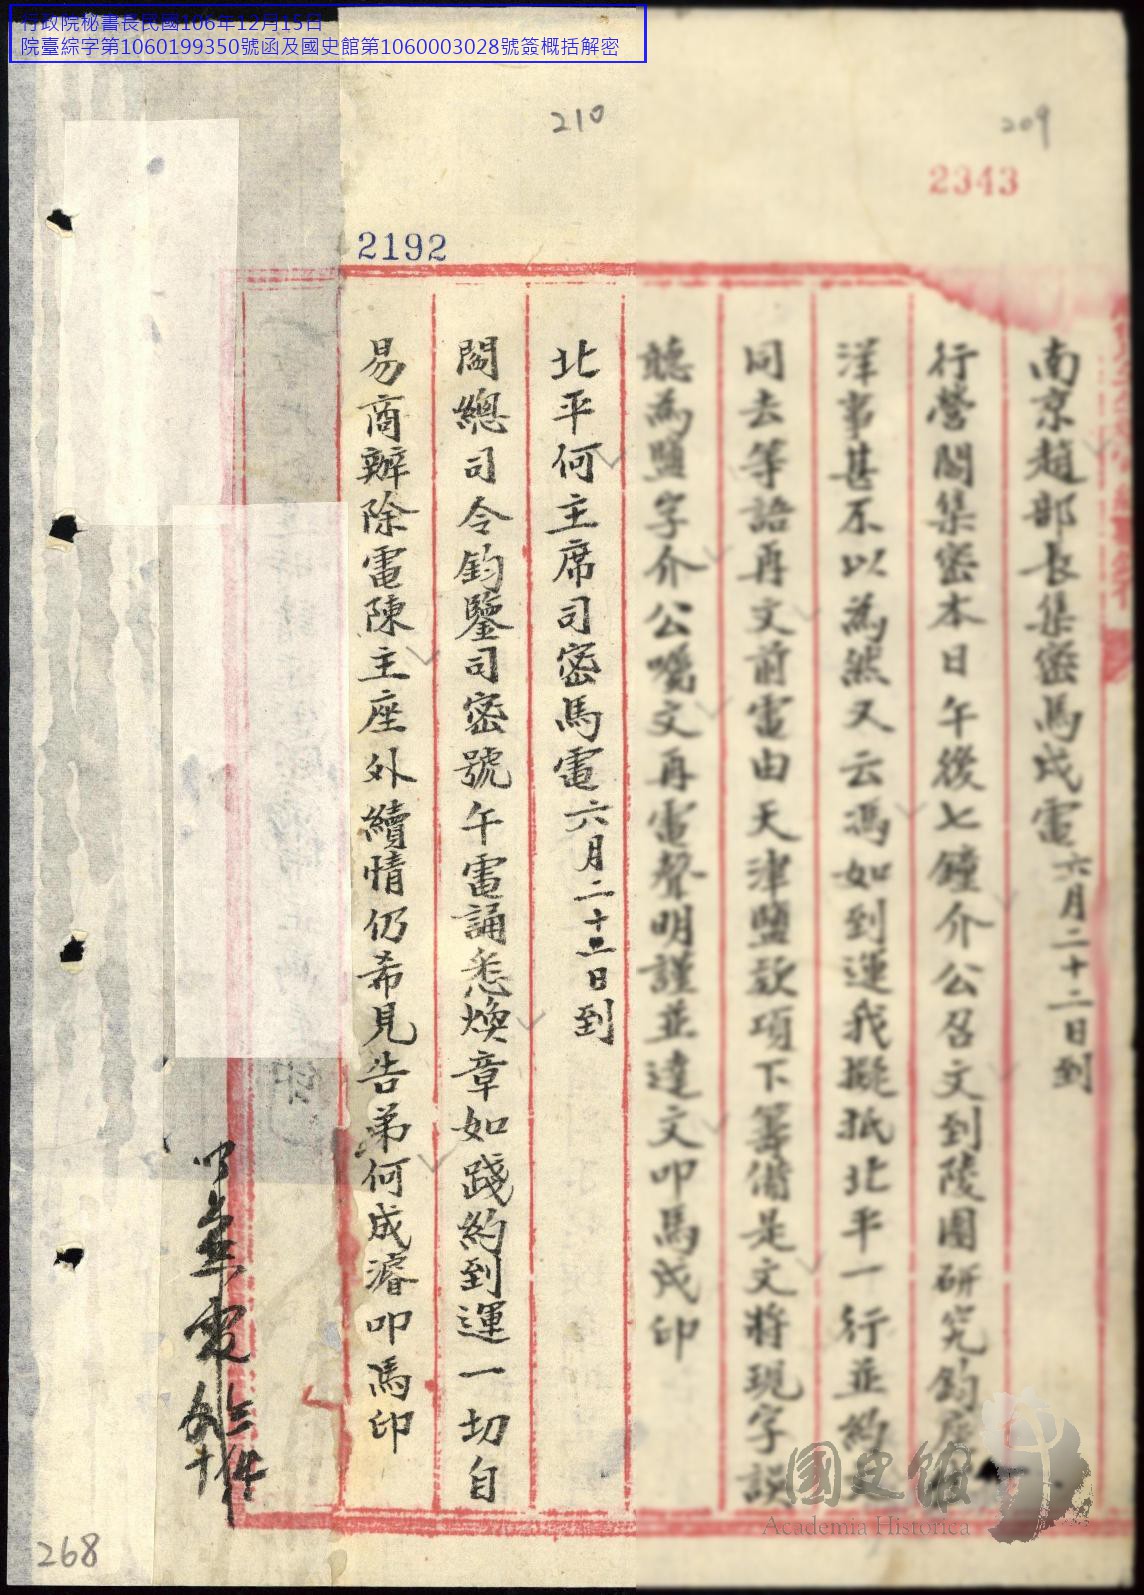 行政院秘書長民國106年12月15日
院臺綜字第1060199350號函及國史館第1060003028號簽概括解密
209
2343
南京趙部長集密馬戌電六月二十二日到
行營閻集密本日午後七鐘介公召文到陵園研究鈞座
洋事甚不以為然又云馮如到運我擬抵北平一行並約
同去等語再文前電由天津鹽款項下籌備是文將現字誤
聽為鹽字介公囑文再電聲明謹並達文叩馬戌印
210
2192
北平何主席司密馬電六月二十二日到
閻總司令鈞鑒司密號午電誦悉煥章如踐約到運一切自
易商辦除電陳主座外續情仍希見告弟何成濬叩馬印
268
國史館
Academia Historica